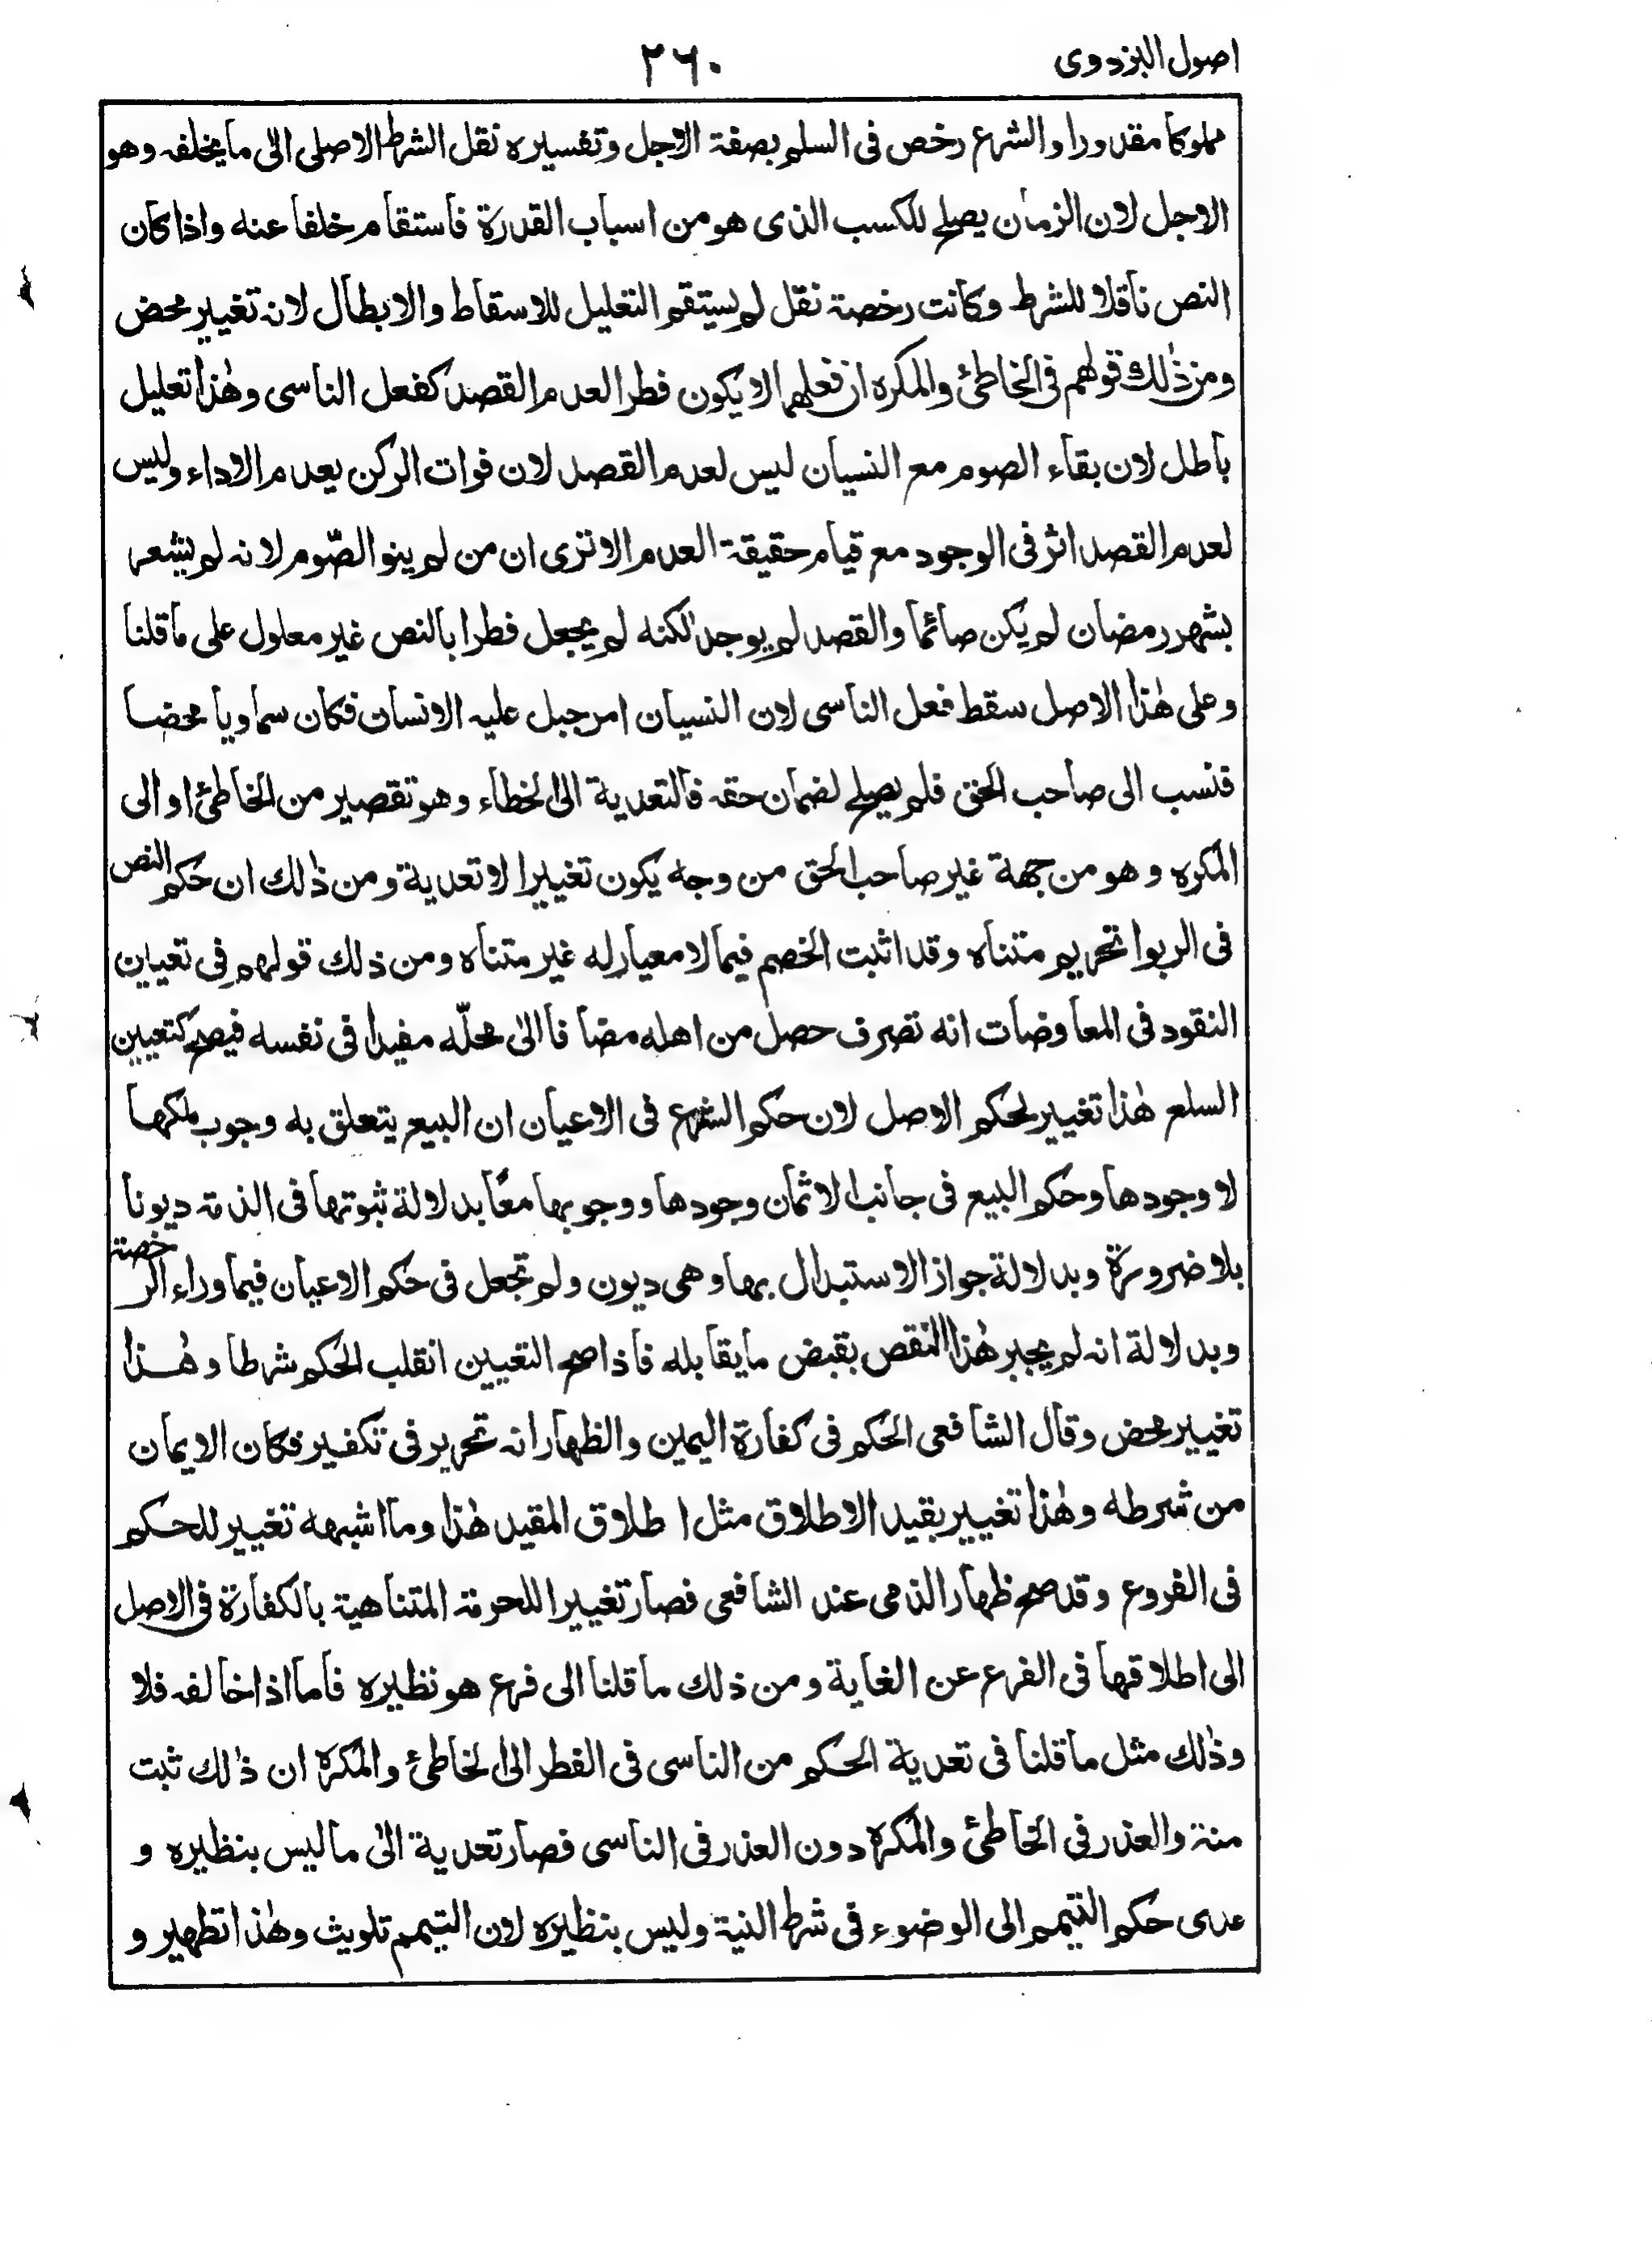 اصول البزدوی
۲۶۰
مملوكا مقدورا والشرع رخص فی السلم بصفة الاجل وتفسیره نقل الشرط الاصلی الی ما یخلفه وهو
الاجل لان الزمان یصلح للكسب الذی هو من اسباب القدرة فاستقام خلفا عنه واذا كان
النص ناقلا للشرط وكانت رخصة نقل لم یستقم التعلیل للاسقاط والابطال لانه تغییر محض
ومن ذٰلك قولهم فی الخاطئ والمكره ان فعلهما لا یكون فطر العدم القصد كفعل الناسی وهٰذا تعلیل
باطل لان بقاء الصوم مع النسیان لیس لعدم القصد لان فوات الركن یعدم الاداء ولیس
لعدم القصد اثر فی الوجود مع قیام حقیقة العدم الا تری ان من لم ینو الصّوم لانه لم یشعر
بشهر رمضان لم یكن صائما والقصد لم یوجد لٰكنه لم یجعل فطرا بالنص غیر معلول علی ما قلنا
وعلی هٰذا الاصل سقط فعل الناسی لان النسیان امر جبل علیه الانسان فكان سماویا محضا
فنسب الی صاحب الحق فلم یصلح لضمان حقه فالتعدیة الی الخطاء وهو تقصیر من الخاطئ او الی
المكره وهو من جهة غیر صاحب الحق من وجه یكون تغییرا لا تعدیة ومن ذٰلك ان حكم النص
فی الربوا تحریم متناه وقد اثبت الخصم فیما لا معیار له غیر متناه ومن ذلك قولهم فی تعیان
النقود فی المعاوضات انه تصرف حصل من اهله مضافا الیٰ محلّه مفیدا فی نفسه فیصح كتعیین
السلع هٰذا تغییر لحكم الاصل لان حكم الشرع فی الاعیان ان البیع یتعلق به وجوب ملكها
لا وجودها وحكم البیع فی جانب الاثمان وجودها ووجوبها معًا بدلالة ثبوتها فی الذمة دیونا
بلا ضرورة وبدلالة جواز الاستبدال بها وهی دیون ولم تجعل فی حكم الاعیان فیما وراء الرخصة
وبدلالة انه لم یجبر هٰذا النقص بقبض ما یقابله فاذا صح التعیین انقلب الحكم شرطا وهٰذا
تغییر محض وقال الشافعی الحكم فی كفارة الیمین والظهار انه تحریر فی تكفیر فكان الایمان
من شرطه وهٰذا تغییر بقید الاطلاق مثل اطلاق المقید هٰذا وما اشبهه تغییر للحكم
فی الفروع وقد صح ظهار الذمی عند الشافعی فصار تغییرا للحرمة المتناهیة بالكفارة فی الاصل
الی اطلاقها فی الفرع عن الغایة ومن ذلك ما قلنا الی فرع هو نظیره فاما اذا خالفه فلا
وذٰلك مثل ما قلنا فی تعدیة الحكم من الناسی فی الفطر الی الخاطئ والمكره ان ذٰلك ثبت
منة والعذر فی الخاطئ والمكره دون العذر فی الناسی فصار تعدیة الیٰ ما لیس بنظیره و
عدی حكم التیمم الی الوضوء فی شرط النیة ولیس بنظیره لان التیمم تلویث وهٰذا تطهیر و